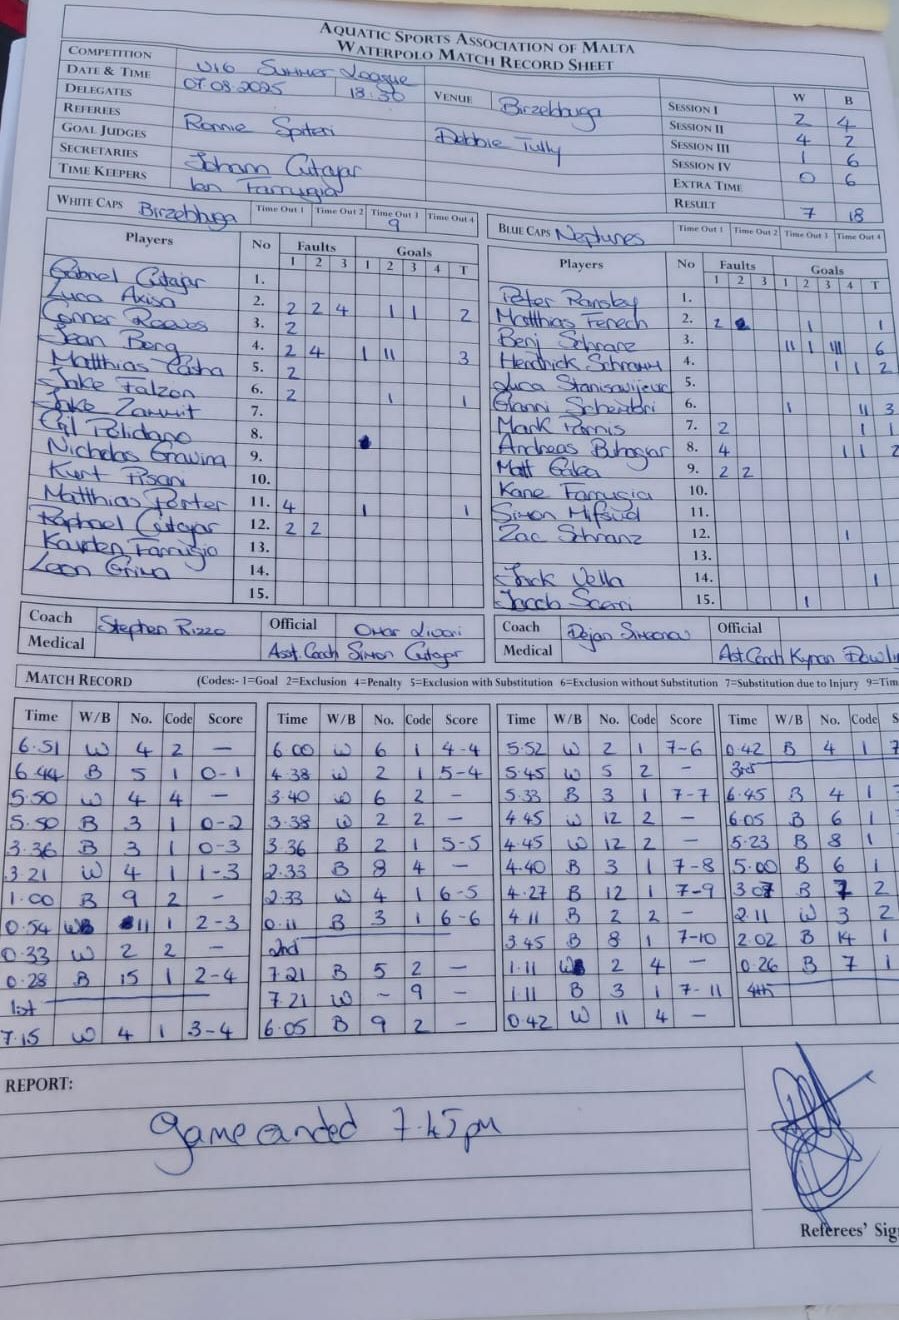 AQUATIC SPORTS ASSOCIATION OF MALTA
WATERPOLO MATCH RECORD SHEET
COMPETITION U16 Summer League
DATE & TIME 07.08.2025 18:30 VENUE Birzebbuga
DELEGATES
REFEREES Ronnie Spiteri Debbie Tully
GOAL JUDGES
SECRETARIES Johann Cutajar
TIME KEEPERS Ian Farrugia
W B
SESSION I 2 4
SESSION II 4 2
SESSION III 1 6
SESSION IV 0 6
EXTRA TIME
RESULT 7 18
WHITE CAPS Birzebbuga Time Out 1 Time Out 2 Time Out 3 9 Time Out 4
Players No Faults Goals
1 2 3 1 2 3 4 T
Gabriel Cutajar 1.
Luca Axisa 2. 2 2 4 1 1 2
Conner Reeves 3. 2
Sean Berg 4. 2 4 1 11 3
Matthias Casha 5. 2
Jake Falzon 6. 2 1 1
Jake Zammit 7.
Gil Polidano 8.
Nicholas Gravina 9.
Kurt Pisani 10.
Matthias Porter 11. 4 1 1
Raphael Cutajar 12. 2 2
Kayden Farrugia 13.
Leon Grima 14.
15.
Coach Stephen Rizzo Official Omar
Medical Asst. Coach Simon Cutajar
BLUE CAPS Neptunes Time Out 1 Time Out 2 Time Out 3 Time Out 4
Players No Faults Goals
1 2 3 1 2 3 4 T
Peter Ransley 1.
Matthias Fenech 2. 2 2 1 1
Benj Schranz 3. 11 1 111 6
Hendrick Schramm 4. 1 1 2
Luca 5.
Gianni Schembri 6. 1 11 3
Mark Pornis 7. 2 1 1
Andreas Buhagiar 8. 4 1 1 2
Matt Galea 9. 2 2
Kane Farrugia 10.
Simon Mifsud 11.
Zac Schranz 12. 1
13.
Jack Vella 14. 1
Jacob Sceri 15. 1
Coach Dejan Official
Medical Ast. Coach Kyran
MATCH RECORD (Codes:- 1=Goal 2=Exclusion 4=Penalty 5=Exclusion with Substitution 6=Exclusion without Substitution 7=Substitution due to Injury 9=Tim
Time W/B No. Code Score
6.51 W 4 2 –
6.44 B 5 1 0-1
5.50 W 4 4 –
5.50 B 3 1 0-2
3.36 B 3 1 0-3
3.21 W 4 1 1-3
1.00 B 9 2 –
0.54 W 11 1 2-3
0.33 W 2 2 –
0.28 B 15 1 2-4
1st
7.15 W 4 1 3-4
Time W/B No. Code Score
6.00 W 6 1 4-4
4.38 W 2 1 5-4
3.40 W 6 2 –
3.38 W 2 2 –
3.36 B 2 1 5-5
2.33 B 8 4 –
2.33 W 4 1 6-5
0.11 B 3 1 6-6
2nd
7.21 B 5 2 –
7.21 W ~ 9 –
6.05 B 9 2 –
Time W/B No. Code Score
5.52 W 2 1 7-6
5.45 W 5 2 –
5.33 B 3 1 7-7
4.45 W 12 2 –
4.45 W 12 2 –
4.40 B 3 1 7-8
4.27 B 12 1 7-9
4.11 B 2 2 –
3.45 B 8 1 7-10
1.11 W 2 4 –
1.11 B 3 1 7-11
0.42 W 11 4 –
Time W/B No. Code S
0.42 B 4 1 7
3rd
6.45 B 4 1
6.05 B 6 1
5.23 B 8 1
5.00 B 6 1
3.07 B 7 2
2.11 W 3 2
2.02 B 14 1
0.26 B 7 1
4th
REPORT:
Game ended 7.45pm
Referees' Sig